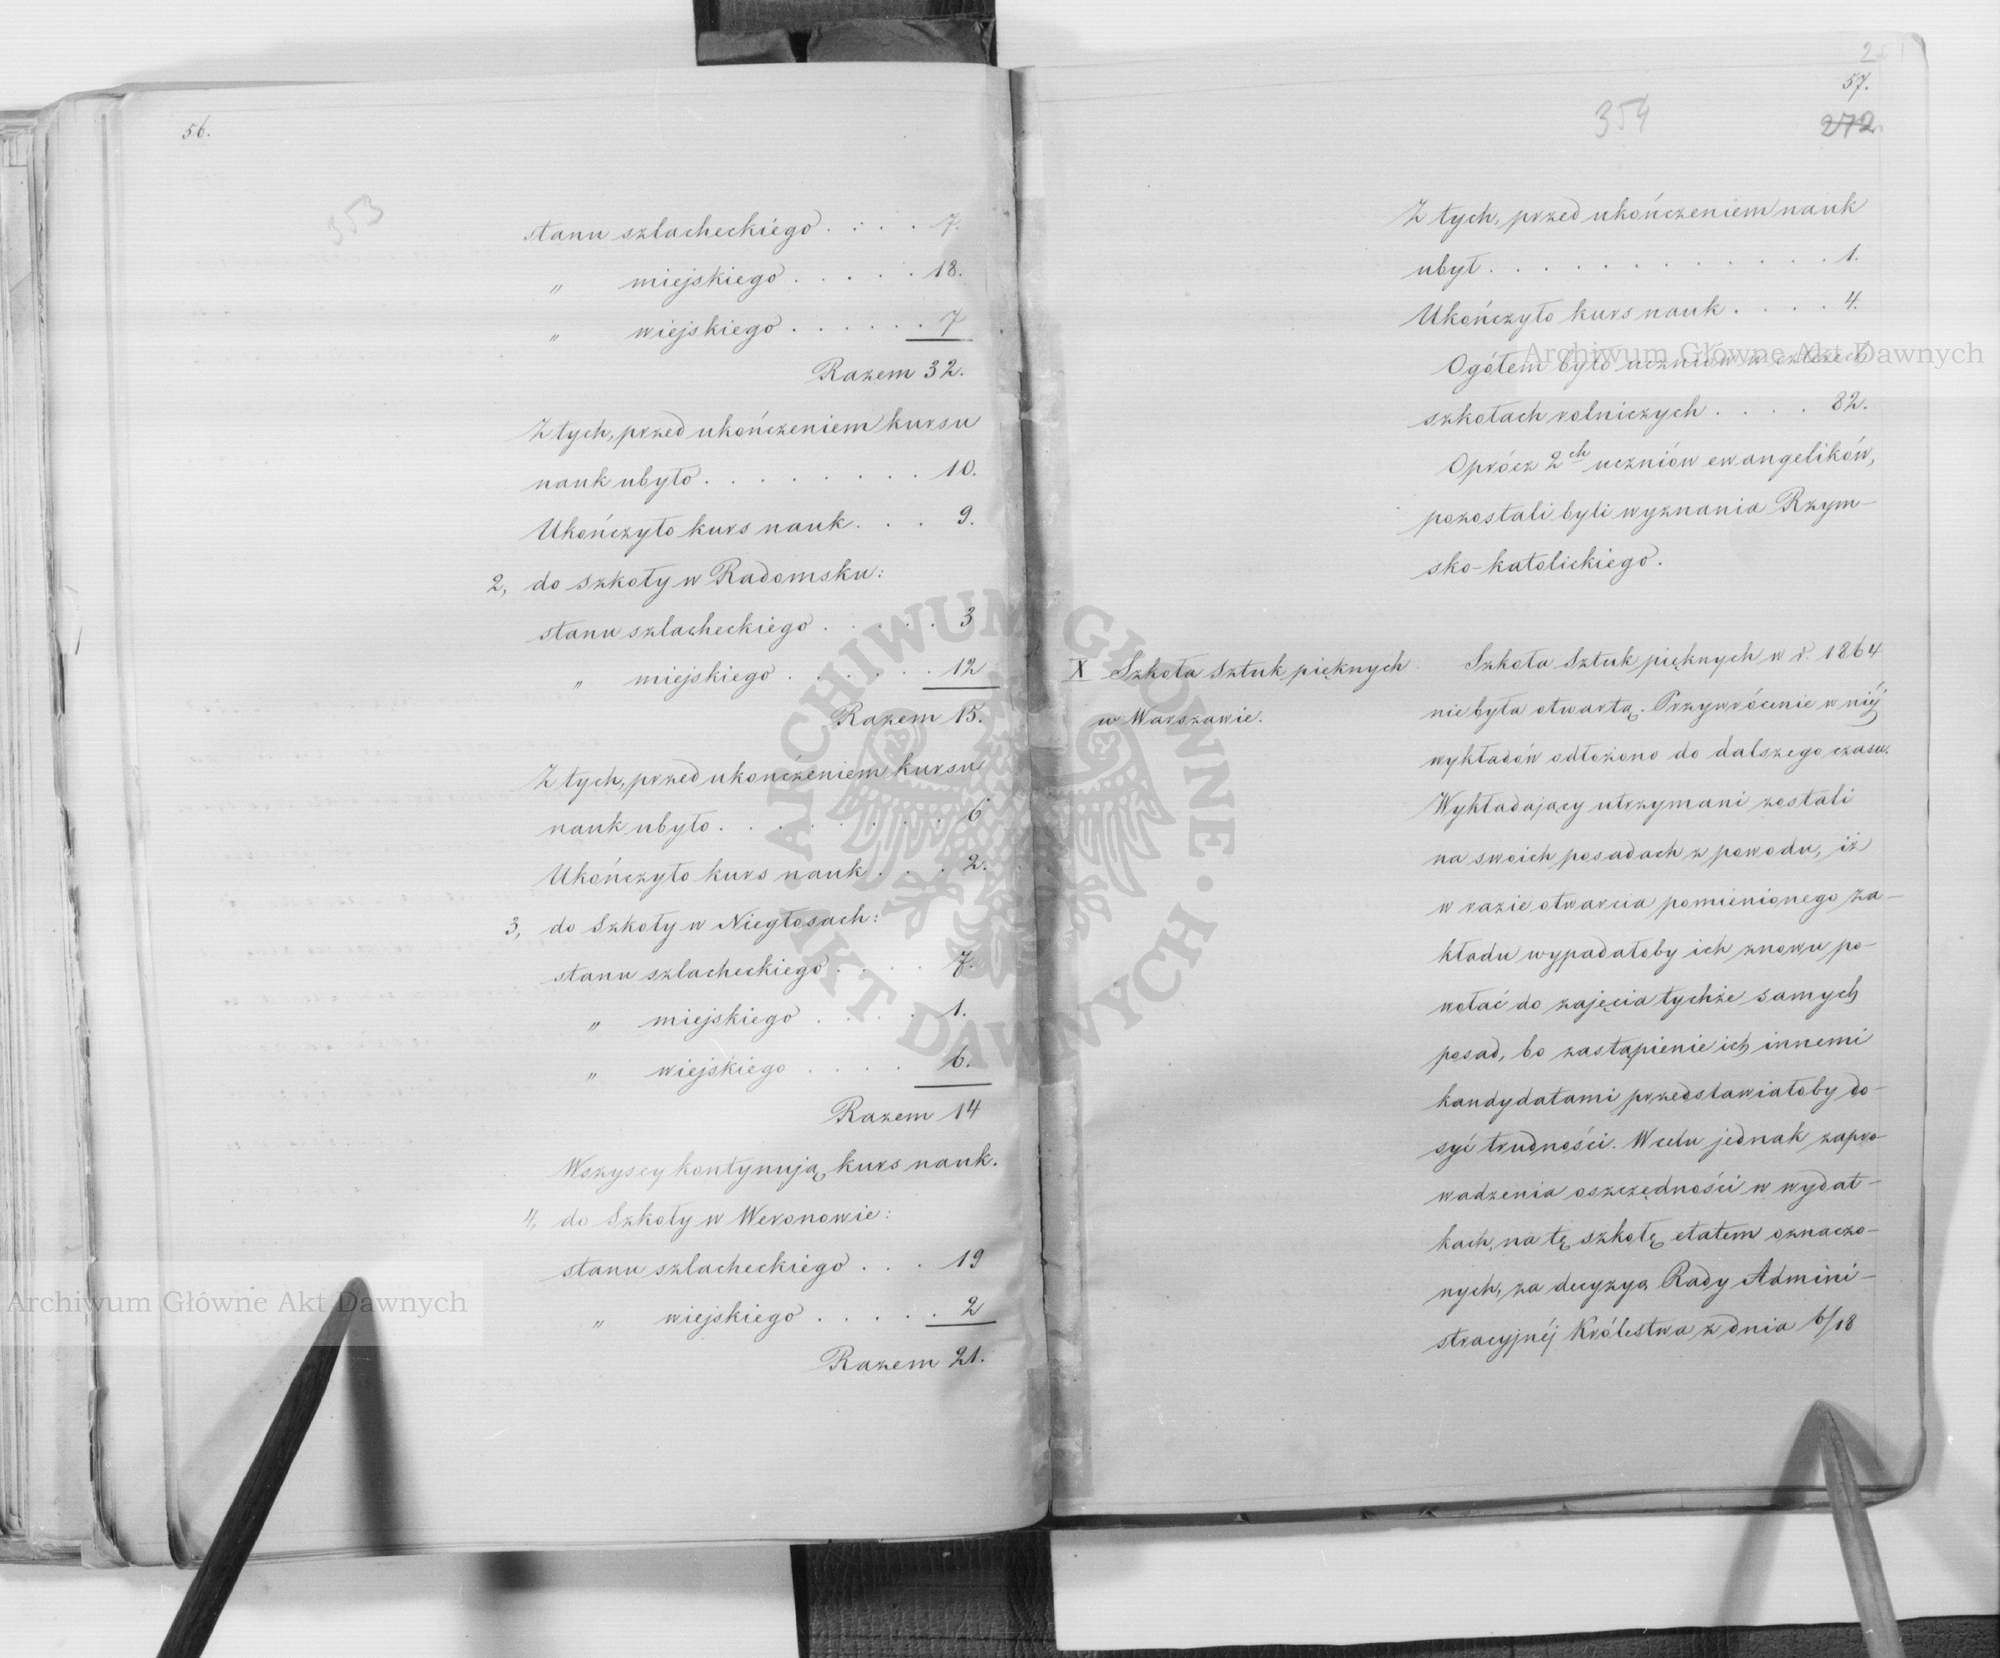 56.
353
stanu szlacheckiego . : . . 7.
" miejskiego . . . . . 18.
" wiejskiego . . . . . . 7
Razem 32.
Z tych, przed ukończeniem kursu
nauk ubyło . . . . . . . . . 10.
Ukończyło kurs nauk . . . 9.
2, do Szkoły w Radomsku:
stanu szlacheckiego . . . . . 3
" miejskiego . . . . . . 12
Razem 15.
Z tych, przed ukończeniem kursu
nauk ubyło . . . . . . . . . 6
Ukończyło kurs nauk . . . 2.
3, do Szkoły w Niegłosach:
stanu szlacheckiego . . . . 7.
" miejskiego . . . . 1.
" wiejskiego . . . . 6.
Razem 14
Wszyscy kontynują kurs nauk.
4, do Szkoły w Weronowie:
stanu szlacheckiego . . . 19
" wiejskiego . . . . . 2
Razem 21.
57.
354
272
Z tych, przed ukończeniem nauk
ubył . . . . . . . . . . . . 1.
Ukończyło kurs nauk . . . . 4.
Ogółem było uczniów w czterech
szkołach rolniczych . . . . 82.
Oprócz 2ch uczniów ewangelików,
pozostali byli wyznania Rzym-
sko-katolickiego.
X Szkoła Sztuk pięknych
w Warszawie.
Szkoła Sztuk pięknych w r. 1864
nie była otwartą. Przywrócenie w niéj
wykładów odłożono do dalszego czasu.
Wykładający utrzymani zostali
na swoich posadach z powodu, iż
w razie otwarcia pomienionego za-
kładu wypadałoby ich znowu po-
wołać do zajęcia tychże samych
posad, bo zastąpienie ich innemi
kandydatami przedstawiałoby do-
syć trudności. W celu jednak zapro-
wadzenia oszczędności w wydat-
kach, na tę szkołę etatem oznaczo-
nych, za decyzyą Rady Admini-
stracyjnéj Królestwa z dnia 6/18
Archiwum Główne Akt Dawnych
Archiwum Główne Akt Dawnych
ARCHIWUM GŁÓWNE · AKT DAWNYCH ·